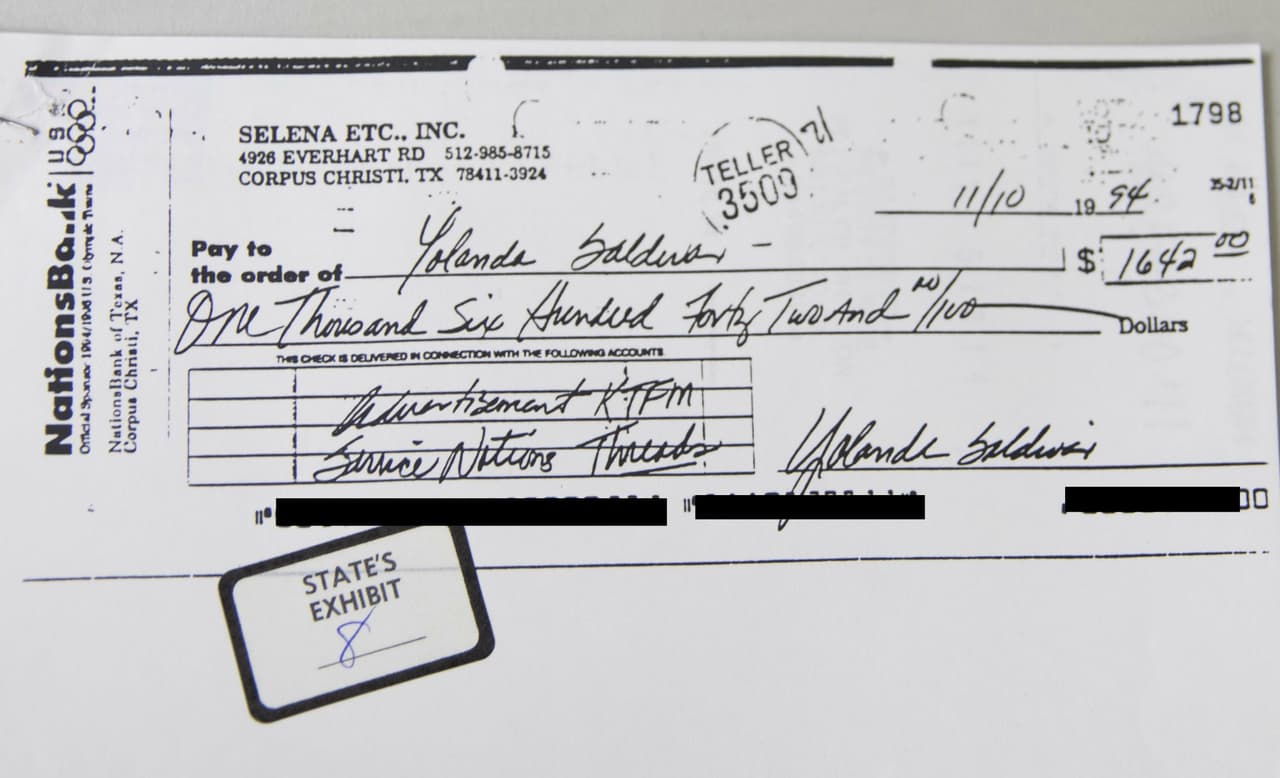 1798
SELENA ETC., INC.
4926 EVERHART RD 512-985-8715
CORPUS CHRISTI, TX 78411-3924
TELLER
3500
21
11/10 19 94
35-2/11
Pay to
the order of Yolanda Saldivar
$ 1642 00
One Thousand Six Hundred Forty Two And 00/100 Dollars
THIS CHECK IS DELIVERED IN CONNECTION WITH THE FOLLOWING ACCOUNTS
Advertisement KTFM
Service Notions Threads
Yolanda Saldivar
00
NationsBank
NationsBank of Texas, N.A.
Corpus Christi, TX
STATE'S
EXHIBIT
8